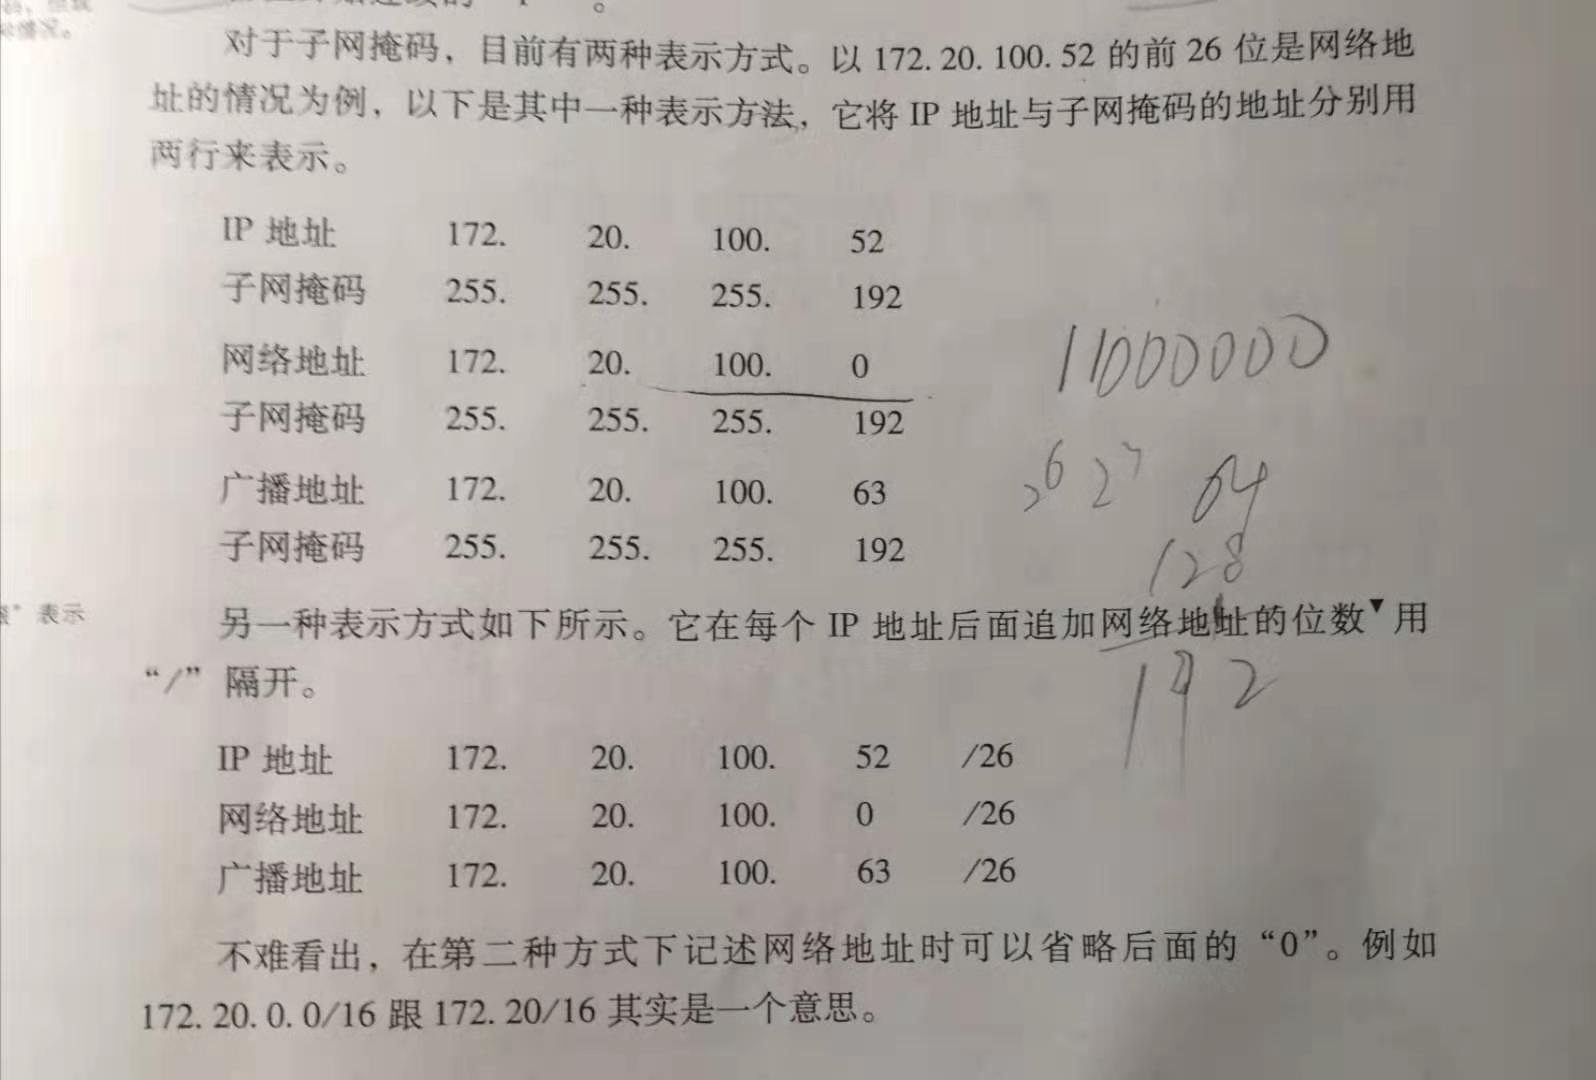 对于子网掩码，目前有两种表示方式。以 172. 20. 100. 52 的前 26 位是网络地
址的情况为例，以下是其中一种表示方法，它将 IP 地址与子网掩码的地址分别用
两行来表示。
IP 地址 172. 20. 100. 52
子网掩码 255. 255. 255. 192
网络地址 172. 20. 100. 0
子网掩码 255. 255. 255. 192
11000000
广播地址 172. 20. 100. 63
2⁶ 2⁷ 64
子网掩码 255. 255. 255. 192
128
表示
另一种表示方式如下所示。它在每个 IP 地址后面追加网络地址的位数▼用
“/” 隔开。
192
IP 地址 172. 20. 100. 52 /26
网络地址 172. 20. 100. 0 /26
广播地址 172. 20. 100. 63 /26
不难看出，在第二种方式下记述网络地址时可以省略后面的“0”。例如
172. 20. 0. 0/16 跟 172. 20/16 其实是一个意思。